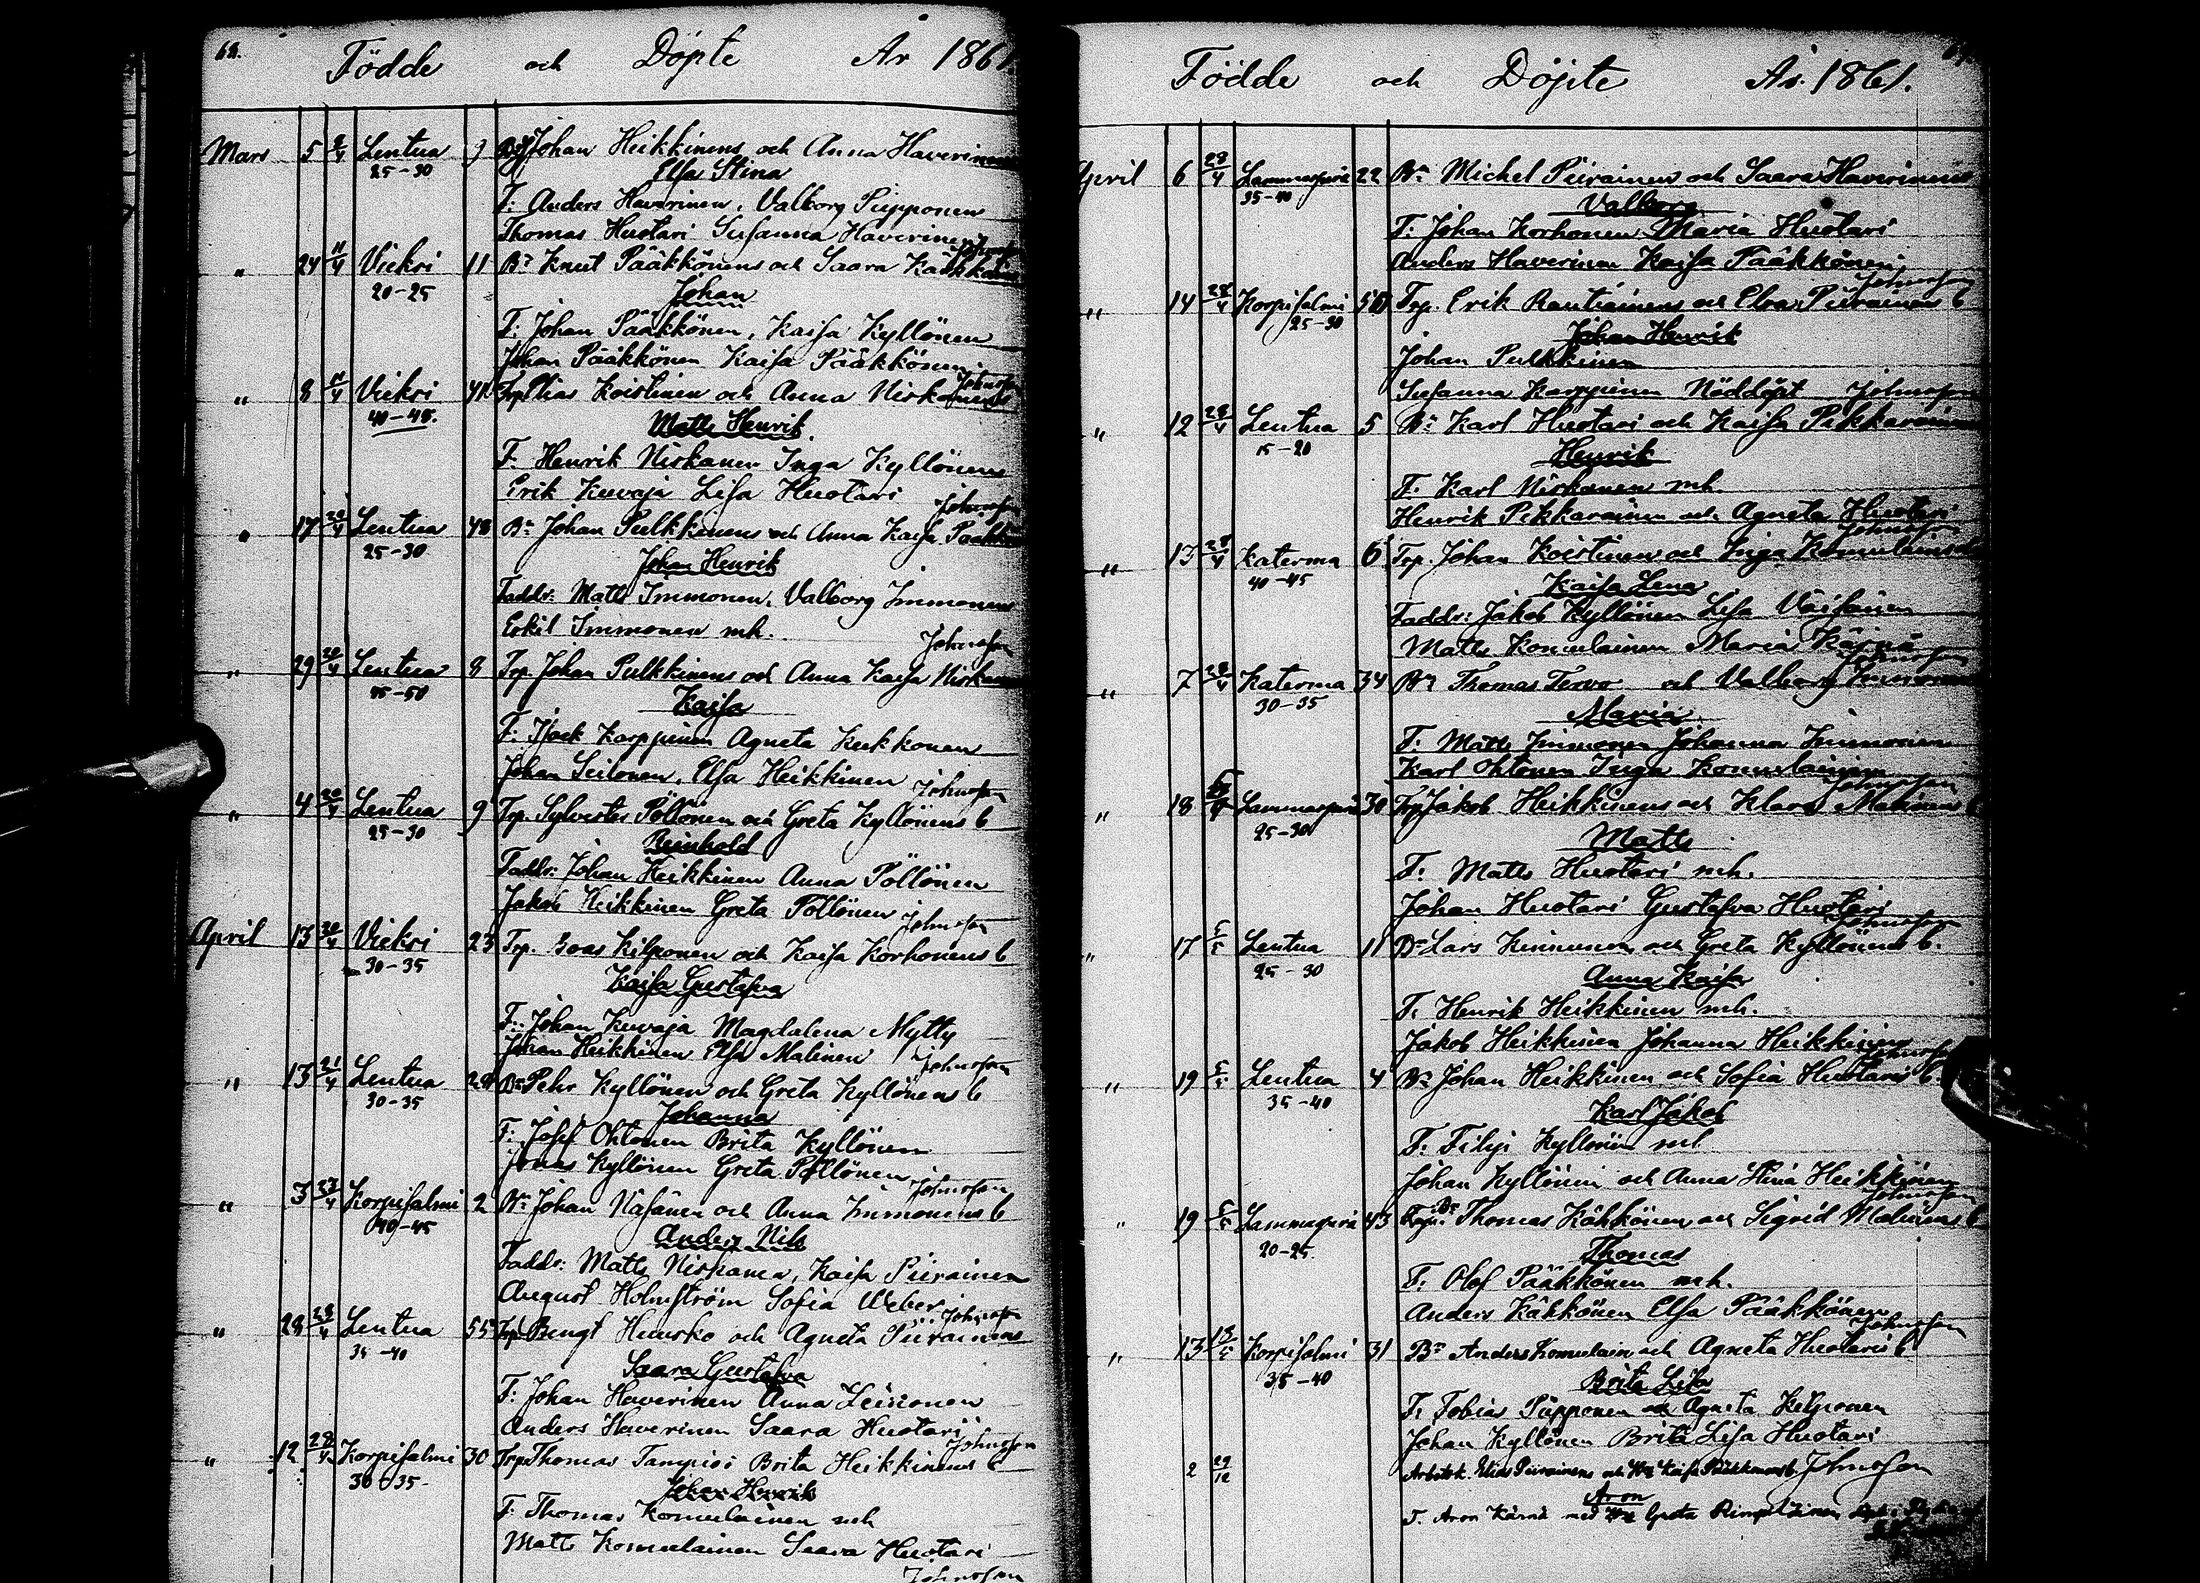 68.
Födde och Döpte År 1861.
Mars 5 2/4 Lentua 9 Johan Heikkinens och Anna Haverinens
25-30 Elsa Stina
F: Anders Haverinen, Valborg Piipponen
Thomas Huotari Susanna Haverinen
" 24 11/4 Vieksi 11 Bn Knut Pääkkönens och Saara
20-25 Johan
F: Johan Pääkkönen, Kaisa Kyllönen
Johan Pääkkönen Kaisa Pääkkönen
Johnsson
" 8 11/4 Vieksi 41 Trp Elias Koistinen och Anna Niskanens
40-45. Matts Henrik
F. Henrik Niskanen Inga Kyllönen
Erik Kuvaja Lisa Huotari Johnsson
" 17 20/4 Lentua 48 Bn Johan Pulkkinens och Anna Kaisa
25-30 Johan Henrik
Faddr: Matts Immonen, Valborg Immonen
Eskil Immonen mh. Johnsson
" 29 20/4 Lentua 8 Trp Johan Pulkkinens och Anna Kaisa
45-50 Kaisa
F: Isack Karppinen Agneta Keikkonen
Johan Seilonen, Elsa Heikkinen Johnsson
" 4 20/4 Lentua 9 Trp. Sylvester Pöllönen och Greta Kyllönens b
25-30 Reinhold
Faddr: Johan Heikkinen Anna Pöllönen
Jakob Heikkinen Greta Pöllönen Johnsson
April 13 20/4 Vieksi 23 Trp. Boas Kilponen och Kaisa Korhonens b
30-35 Kaisa Gustafva
F: Johan Kuvaja Magdalena Mytty
Johan Heikkinen Elsa Malinen Johnsson
" 13 21/4 Lentua 28 Bn Pehr Kyllönen och Greta Kyllönens b
30-35 Johanna
F: Josef Ohtonen Brita Kyllönen
Jonas Kyllönen Greta Pöllönen Johnsson
" 3 23/4 Korpisalmi 2 Bn Johan Väisänen och Anna Immonens b
40-45 Anders Nils
Faddr: Matts Niskanen, Kaisa Piirainen
August Holmström Sofia Weber Johnsson
" 28 28/4 Lentua 55 Trp Bengt Huusko och Agneta Piirainens
35-40 Saara Gustafva
F: Johan Haverinen Anna Leinonen
Anders Haverinen Saara Huotari Johnsson
" 12 28/4 Korpisalmi 30 Trp Thomas Tampio Brita Heikkinens b
30-35 Johan Henrik
F: Thomas Komulainen mh
Matts Komulainen Saara Huotari
Johnsson
Födde och Döpte År. 1861.
April 6 28/4 Lammasperä 22 Bn Michel Piirainen och Saara Haverinens
35-40 Valborg
F: Johan Korhonen Maria Huotari
Anders Haverinen Kaisa Pääkkönen Johnsson
" 14 28/4 Korpisalmi 50 Trp. Erik Rautiainens och Elva Piirainens b
25-30 Johan Henrik
Johan Pulkkinen
Susanna Karppinen Nöddöpt Johnsson
" 12 28/4 Lentua 5 Bn Karl Huotari och Kaisa
15-20 Henrik
F. Karl Niskanen mh.
Henrik Pikkarainen och Agneta Huotari
Johnsson
" 13 28/4 Katerma 6 Trp. Johan Koistinen och Inga Komulainens
40-45 Kaisa Lena
Faddr: Jakob Kyllönen Lisa Väisänen
Matts Komulainen Maria Kärnä
Johnsson
" 7 28/4 Katerma 34 Bn Thomas Tervo och Valborg
30-35 Maria
F: Matts Immonen Johanna Immonen
Karl Ohtonen Inga Komulainen
Johnsson
" 18 Lammasperä 30 Trp Jakob Heikkinens och Klara Malinens b
25-30 Matts
F: Matts Huotari mh.
Johan Huotari Gustafva Huotari
Johnsson
" 17 5/5 Lentua 11 Bn Lars Kinnunen och Greta Kyllönens b.
25-30 Anna Kaisa
F. Henrik Heikkinen mh.
Jakob Heikkinen Johanna Heikkinen
Johnsson
" 19 5/5 Lentua 4 Bn Johan Heikkinen och Sofia Huotaris b.
35-40 Karl Jakob
F: Filip Kyllönen mh
Johan Kyllönen och Anna Stina Heikkinen
Johnsson
" 19 5/5 Lammasperä 43 Thomas Kähkönen och Sigrid Malinens b
20-25. Thomas
F: Olof Pääkkönen mh.
Anders Kähkönen Elsa Pääkkönen
Johnsson
" 13 13/5 Korpisalmi 31 Bn Anders Komulain och Agneta Huotaris b
35-40 Brita Lisa
F: Tobias Piipponen och Agneta Kilponen
Johan Kyllönen Brita Lisa Huotari
2 29/12 Arbetsk. Elias Piirainens och Kaisa Pääkkönens b Johnsson
Aron
F. Aron Kärnä med Greta